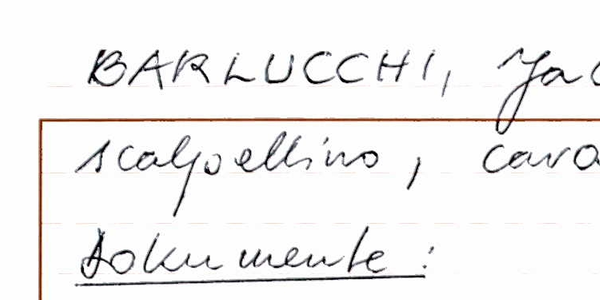 BARLUCCHI, Ja
scalpellino, cava
Dokumente: